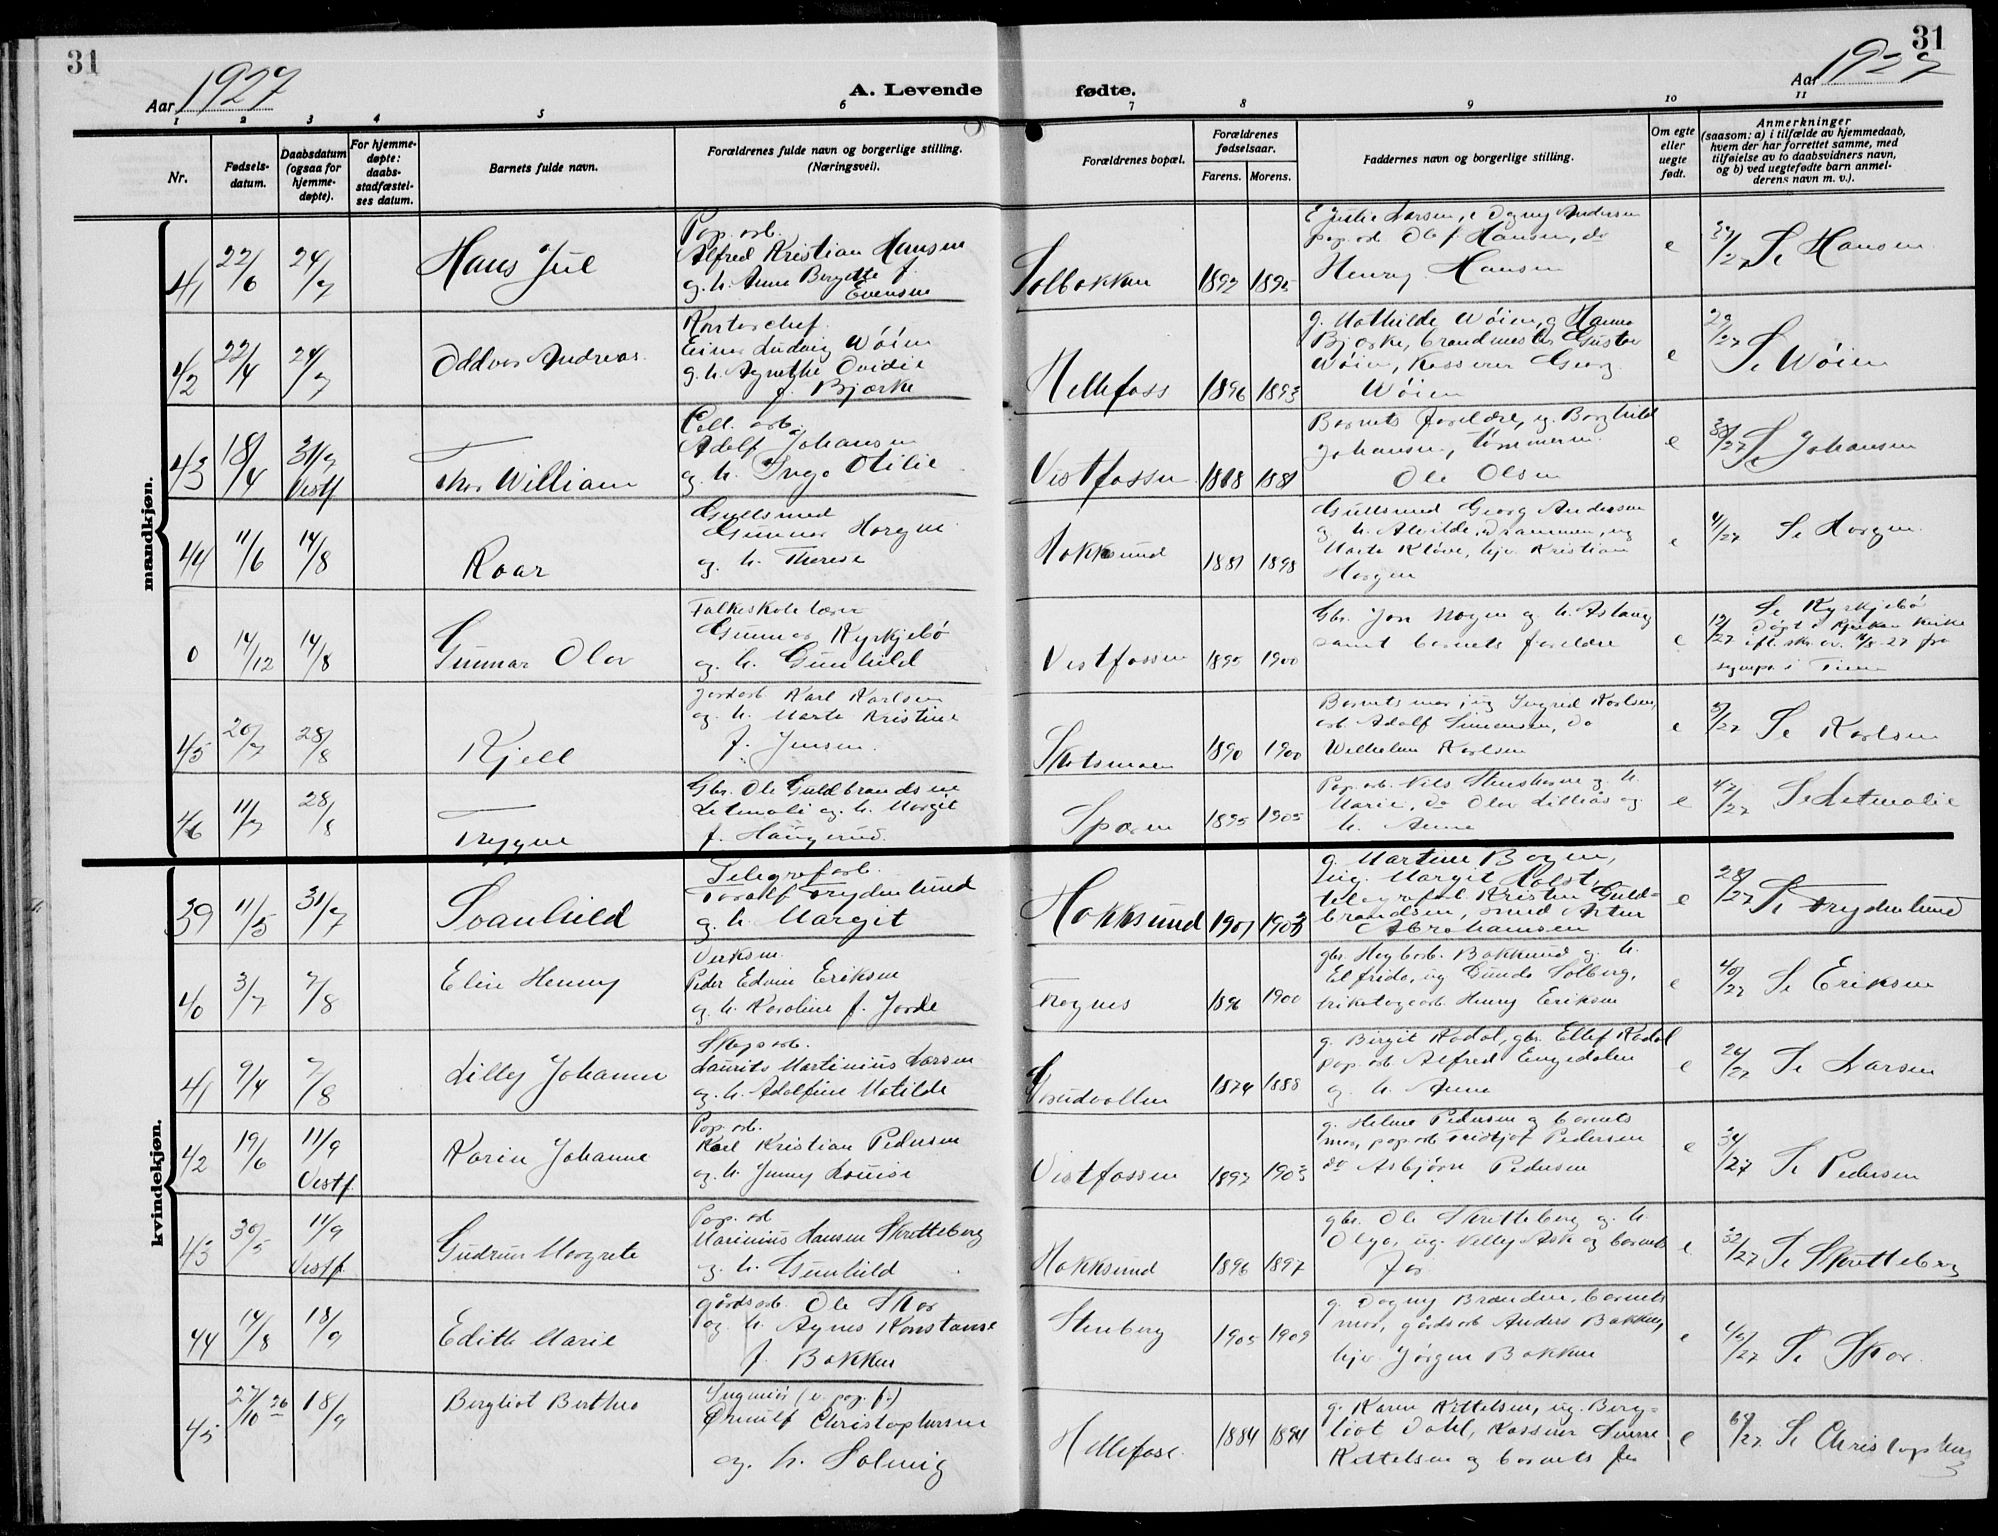 31
31
Aar 1927
A. Levende fødte.
Aar 1927
1 2 3 4 5 6 7 8 9 10 11
Nr.
Fødsels-
datum.
Daabsdatum
(ogsaa for
hjemme-
døpte).
For hjemme-
døpte:
daabs-
stadfæstel-
ses datum.
Barnets fulde navn.
Forældrenes fulde navn og borgerlige stilling.
(Næringsvei).
Forældrenes bopæl.
Forældrenes
fødselsaar.
Farens. Morens.
Faddernes navn og borgerlige stilling.
Om egte
eller
uegte
født.
Anmerkninger
(saasom: a) i tilfælde av hjemmedaab,
hvem der har forrettet samme, med
tilføielse av to daabsvidners navn,
og b) ved uegtefødte barn anmel-
derens navn m. v.).
mandkjøn.
41 22/6 24/7 Hans Jul
Pap. arb.
Alfred Kristian Hansen
og h. Anne Bergitte f.
Evensen
Solbakken 1892 1895
E Julie Larsen, e Dagny Andersen
pap. arb Ole J. Hansen, do
Henry Hansen
e
31/27 Se Hansen
42 22/4 24/7 Oddvar Andreas
Kontorchef
Einar Ludvig Wøien
g. h. Agnethe Ovidie
f. Bjørke
Hellefoss 1896 1893
g. Mathilde Wøien, g Hanna
Bjørke, brandmester Gustav
Wøien, Kasserer Georg
Wøien
e
29/27 Se Wøien
43 18/4 31/7 Vestf Thor William
Cell. arb.
Adolf Johansen
og h. Inga Otilie
Vestfossen 1888 1881
Barnets forældre, ug. Borghild
Johansen, tømmerm.
Ole Olsen
e
38/27 Se Johansen
44 11/6 14/8 Roar
Gullsmed
Gunnar Horgen
og h. Therese
Hokksund 1881 1898
Gullsmed Georg Andersen
g h. Alvilde, Drammen, ug
Marta Kløve, hjv. Kristian
Horgen
e
41/27 Se Horgen
0 14/12 14/8 Gunnar Olav
Folkeskolelærer
Gunnar Kyrkjebø
og h. Gunhild
Vestfossen 1895 1900
Gbr. Jon Hogen og h. Aslaug
samt barnets foreldre
e
12/27 Se Kyrkjebø
Døpt i Kirke
ift. skr. av 14/8-27 fra
sognepr. i Tinn
45 20/7 28/8 Kjell
Jordarb Karl Karlsen
og h. Marta Kristine
f. Jensen.
Skotsmoen 1890 1900
Barnets mor, ug Ingrid Karlsen,
arb Adolf Simensen, do
Wilhelm Karlsen
e
Se Karlsen
46 11/7 28/8 Trygve
Gbr. Ole Guldbrandsen
Letmoli og h. Margit
f. Haugerud.
Sporen 1895 1905
Pap. arb. Nils Stensborne g h.
Marie, do Olav Lilleås og
h. Anne
e
47/27 Se Letmolie
kvindekjøn.
39 11/5 31/7 Svanhild
Telegrafarb.
Toralf Frydenlund
g. h. Margit
Hokksund 1901 1903
g. Martine Bogen,
ug. Margit Holst,
telegrafarb. Kristen Guld-
brandsen, smed Artur
Abrahamsen
e
28/27 Se Frydenlund
40 3/7 7/8 Elin Henny
Verksm.
Peder Edvin Eriksen
og h. Karoline f. Jorde
Frognes 1896 1900
gbr. Høgbarb. Bakkerud og h.
Elfrida, ug Gunda Solberg,
trikotagearb Henry Eriksen
e
40/27 Se Eriksen
41 9/4 7/8 Lilly Johanne
Skogsarb.
Laurits Martinius Larsen
og h. Adolfine Matilde
Grundvollen 1874 1888
g. Birgit Rødal, gbr. Ellef Rødal
pap. arb Alfred Engedalen
g h. Anne
e
26/27 Se Larsen
42 19/6 11/9 Vestf. Karin Johanne
Pap. arb.
Karl Kristian Pedersen
og h. Jenny Louise
Vestfossen 1897 1903
g. Helene Pedersen og barnets
mor, pap. arb Fridtjof Pedersen
do Asbjørn Pedersen
e
34/27 Se Pedersen
43 30/5 11/9 Vestf. Gudrun Margrete
Pap. arb
Marinius Hansen Skretteberg
g. h. Gunhild
Hokksund 1896 1897
gbr. Ole Skretteberg og h.
Olga, ug. Nelly Ask og barnets
far
e
32/27 Se Skretteberg
44 14/8 18/9 Edith Marie
gårdsarb. Ole Skar
og h. Agnes Konstanse
f. Bakken
Stenberg 1905 1909
g. Dagny Branden, barnets
mor, gårdsarb Anders Bakken,
hjv. Jørgen Bakken
e
Se Skar.
45 27/10 26 18/9 Bergliot Berthea
Ingeniør (v. pap. f.)
Ørnulf Christophersen
og. h. Solveig
Hellefoss. 1884 1894
g. Karen Kettelsen, ug. Berg-
liot Dahl, Kasserer Sverre
Kettelsen og barnets far
e
68/27 Se Christophersen